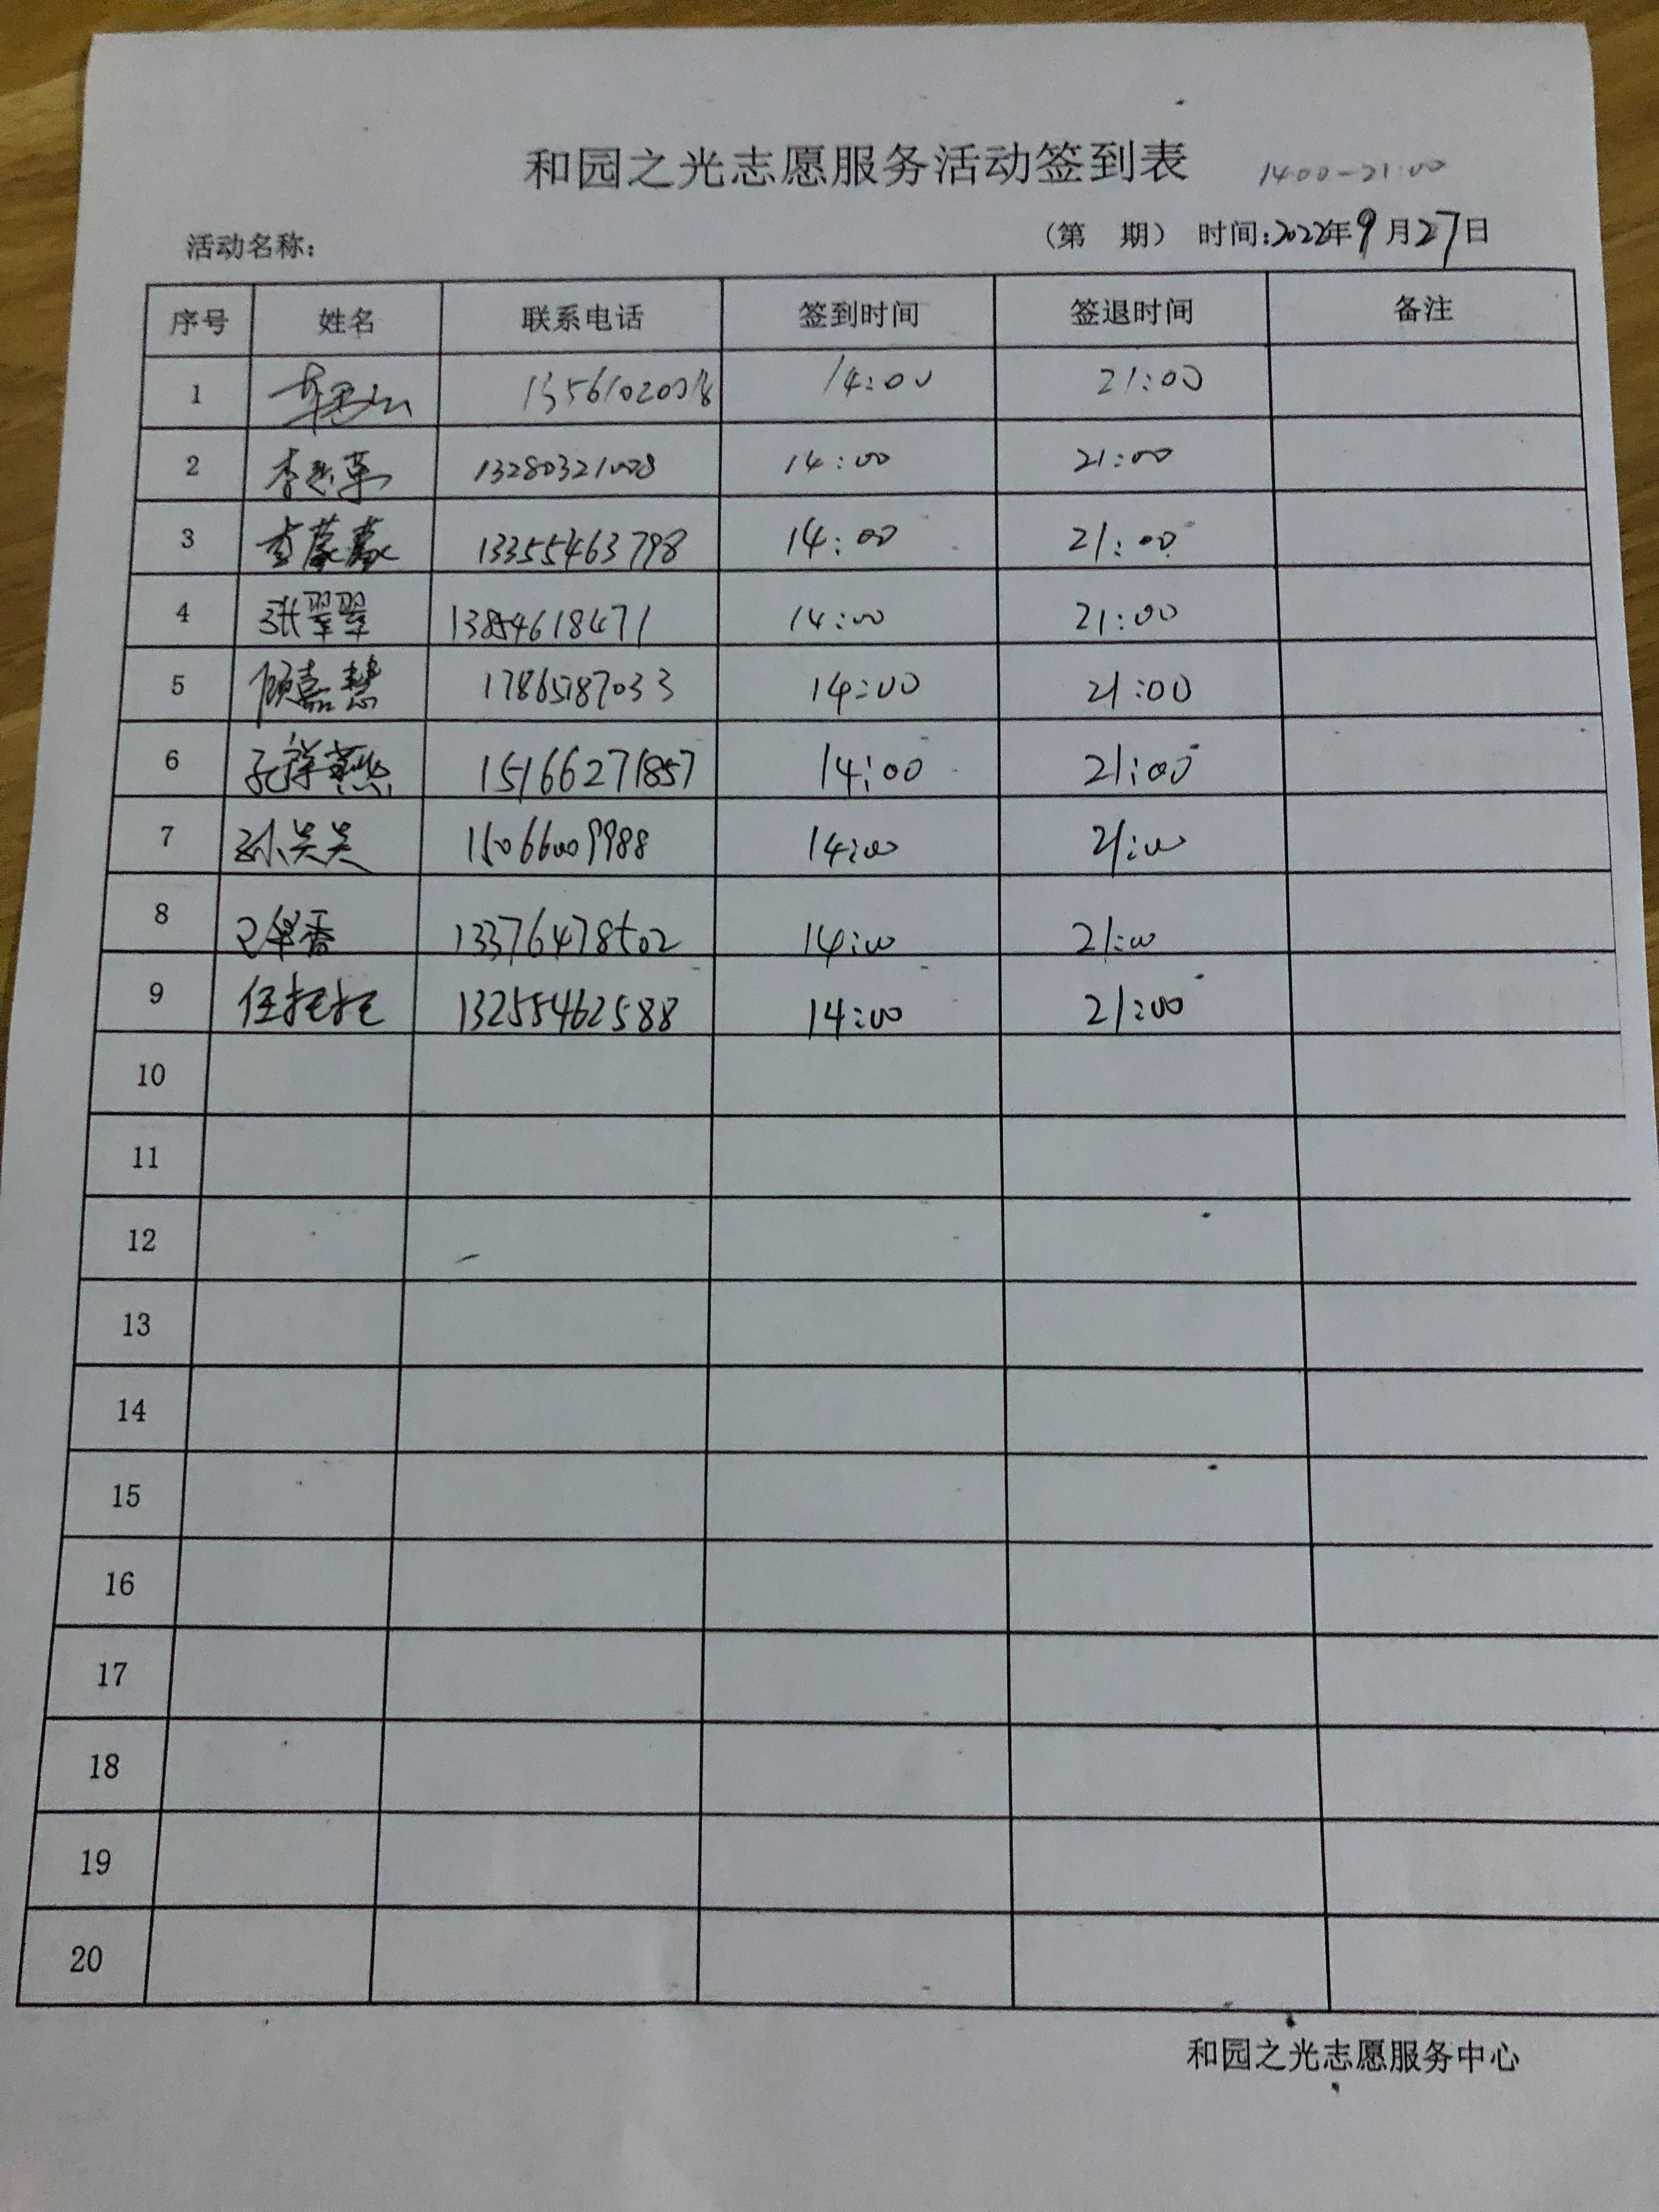 和园之光志愿服务活动签到表 14:00-21:00
活动名称： （第 期） 时间:2022年9月27日
序号 姓名 联系电话 签到时间 签退时间 备注
1 14:00 21:00
2 13280321008 14:00 21:00
3 李蒙蒙 13355463798 14:00 21:00
4 张翠翠 13854618471 14:00 21:00
5 顾嘉慧 17865187033 14:00 21:00
6 孔祥燕 15166271857 14:00 21:00
7 孙昊昊 15066009988 14:00 21:00
8 13376478502 14:00 21:00
9 任 13255462588 14:00 21:00
10
11
12
13
14
15
16
17
18
19
20
和园之光志愿服务中心